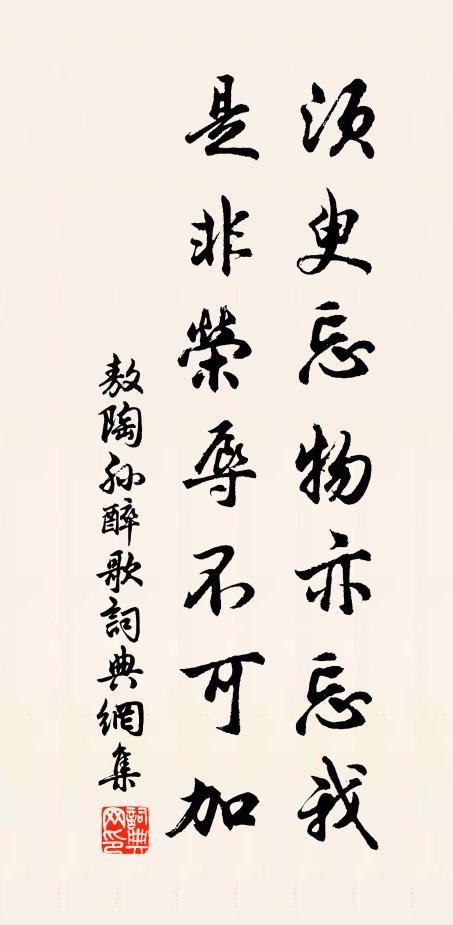 須臾忘物亦忘我
是非榮辱不可加
敖陶孫醉歌詞典網集
詞典网印